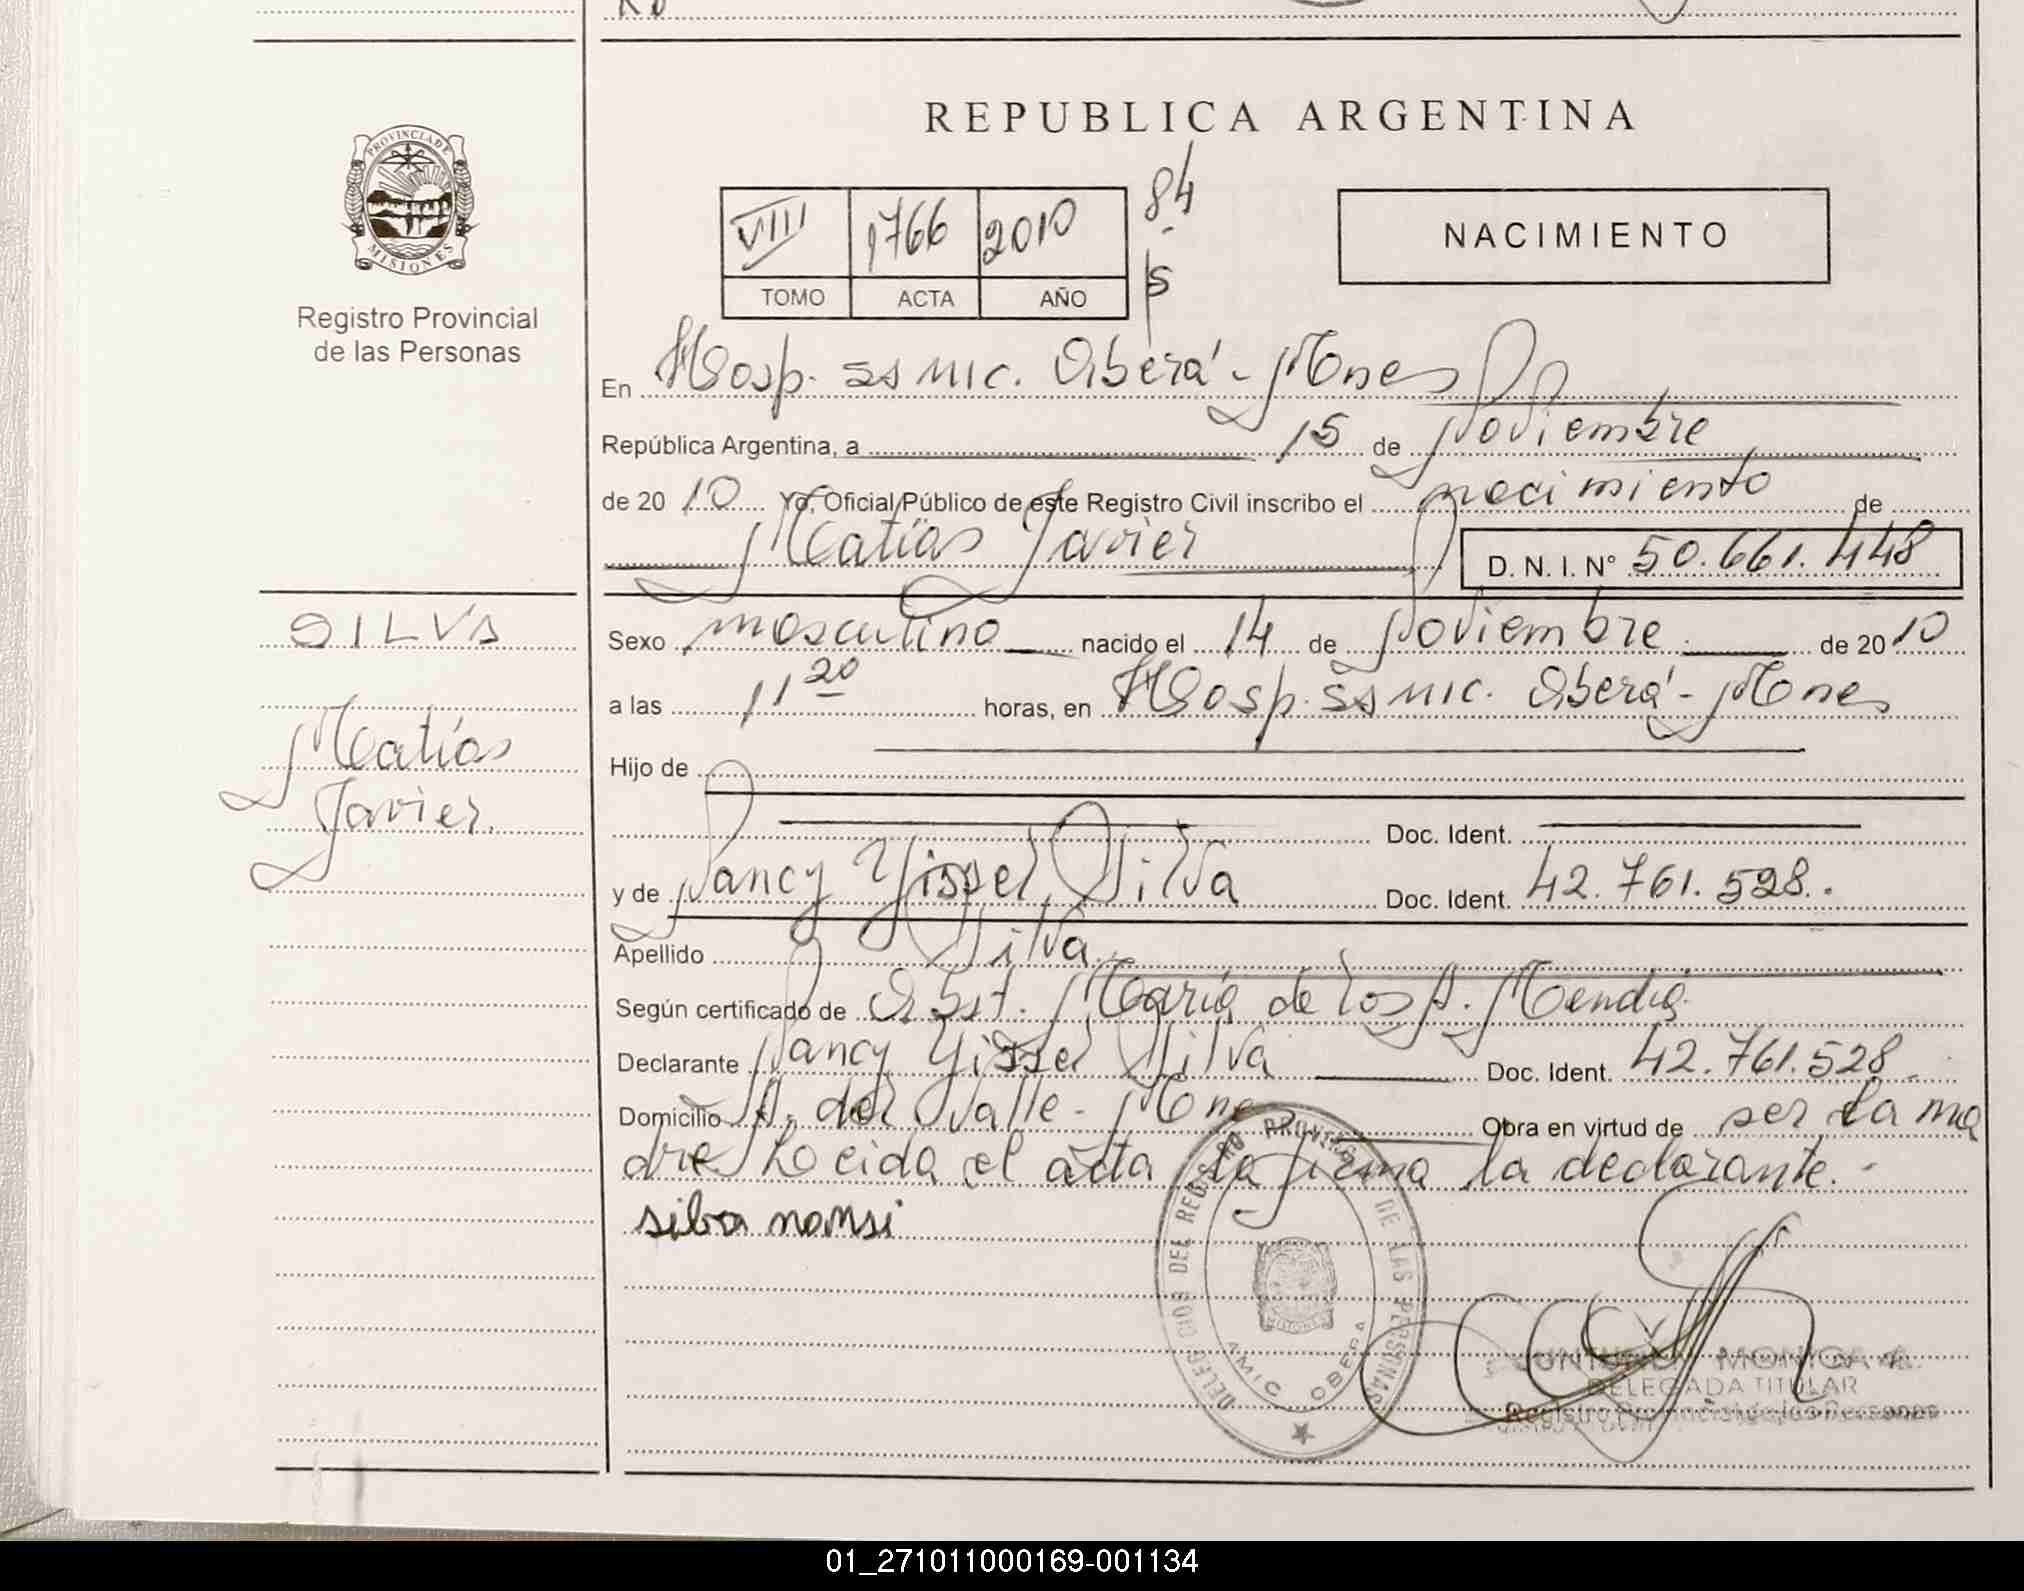 REPUBLICA ARGENTINA
PROVINCIA DE
MISIONES
Registro Provincial
de las Personas
VIII 1766 2010 84
TOMO ACTA AÑO
NACIMIENTO
En Hosp. ss mic. Oberá - Mnes
República Argentina, a 15 de Noviembre
de 20 10 Yo, Oficial Público de este Registro Civil inscribo el nacimiento de
Matías Javier D. N. I. N° 50.661.448
SILVA
Sexo masculino nacido el 14 de Noviembre de 20 10
a las 11 20 horas, en Hosp. ss mic. Oberá - Mnes
Matías
Javier.
Hijo de
Doc. Ident.
y de Nancy Yissel Silva Doc. Ident. 42.761.528.
Apellido Silva
Según certificado de Obst. María de los A. Mendia
Declarante Nancy Yissel Silva Doc. Ident. 42.761.528
Domicilio A. del Valle - Mnes Obra en virtud de ser la ma
dre Leida el acta la firma la declarante.-
silva nansi
REGISTRO PROVINCIAL DE LAS PERSONAS
MISIONES
AMIC OBERA
MONICA A.
DELEGADA TITULAR
Registro Provincial de las Personas
01_271011000169-001134